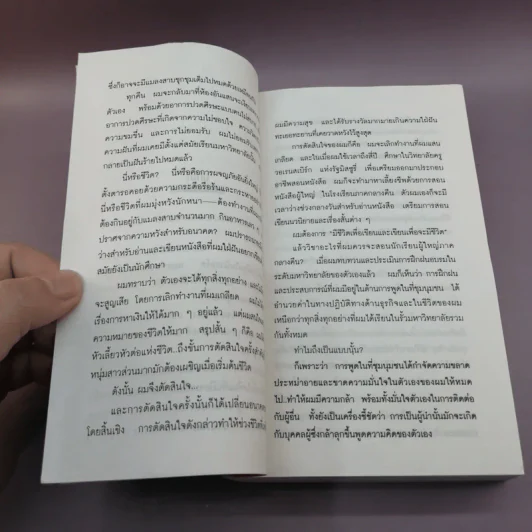 ซึ่งก็อาจจะมีแมลงสาบชุกชุมเต็มไปหมดด้วยเหมือนกัน
ทุกคืน ผมจะกลับมาที่ห้องอันแสนจะเงียบ
ตัวเอง พร้อมด้วยอาการปวดศีรษะแบบคนไม่
อาการปวดศีรษะที่เกิดจากความไม่ชอบใจ ความวิตก
ความขมขื่น และการไม่ยอมรับ ผมไม่ยอมรับ
ความฝันที่ผมเคยมีตั้งแต่สมัยเรียนมหาวิทยาลัยนั้น
กลายเป็นฝันร้ายไปหมดแล้ว
นี่หรือชีวิต? นี่หรือคือการผจญภัยอันยิ่งใหญ่
ตั้งตารอคอยด้วยความกระตือรือร้นและ
นี่หรือชีวิตที่ผมมุ่งหวังนักหนา——ต้องทำงานที่
ต้องกินอยู่กับแมลงสาบจำนวนมาก กินอาหาร
ปราศจากความหวังสำหรับอนาคต? ผมปรารถนา
ว่างสำหรับอ่านและเขียนหนังสือที่ผมใฝ่ฝันอยาก
สมัยยังเป็นนักศึกษา
ผมทราบว่า ตัวเองจะได้ทุกสิ่งทุกอย่าง และ
จะสูญเสีย โดยการเลิกทำงานที่ผมเกลียด ผมไม่
เรื่องการหาเงินให้ได้มาก ๆ อยู่แล้ว แต่ผม
ความหมายของชีวิตให้มาก สรุปสั้น ๆ ก็คือ ผม
หัวเลี้ยวหัวต่อแห่งชีวิต...ถึงขั้นการตัดสินใจครั้งสำคัญ
หนุ่มสาวส่วนมากมักต้องเผชิญเมื่อเริ่มต้นชีวิต
ดังนั้น ผมจึงตัดสินใจ...
และการตัดสินใจครั้งนั้นก็ได้เปลี่ยนอนาคต
โดยสิ้นเชิง การตัดสินใจดังกล่าวทำให้ช่วงชีวิต
ผมมีความสุข และได้รับรางวัลมากมายเกินความใฝ่ฝัน
ทะเยอทะยานที่เคยวาดหวังไว้สูงสุด
การตัดสินใจของผมก็คือ ผมจะเลิกทำงานที่ผมแสน
เกลียด และในเมื่อผมใช้เวลาถึงสี่ปี ศึกษาในวิทยาลัยครู
วอเรนสเบิร์ก แห่งรัฐมิสซูรี่ เพื่อเตรียมออกมาประกอบ
อาชีพสอนหนังสือ ผมก็จะทำมาหาเลี้ยงชีพด้วยการสอน
หนังสือผู้ใหญ่ ในโรงเรียนภาคกลางคืน ตัวผมเองก็จะมี
เวลาว่างช่วงกลางวันสำหรับอ่านหนังสือ เตรียมการสอน
เขียนนวนิยายและเรื่องสั้นต่าง ๆ
ผมต้องการ "มีชีวิตเพื่อเขียนและเขียนเพื่อจะมีชีวิต"
แล้ววิชาอะไรที่ผมควรจะสอนนักเรียนผู้ใหญ่ภาค
กลางคืน? เมื่อผมทบทวนและประเมินการฝึกฝนอบรมใน
ระดับมหาวิทยาลัยของตัวเองแล้ว ผมก็เห็นว่า การฝึกฝน
และประสบการณ์ที่ผมมีอยู่ในด้านการพูดในที่ชุมนุมชน ได้
อำนวยค่าในทางปฏิบัติทางด้านธุรกิจและในชีวิตของผม
เหนือกว่าทุกสิ่งทุกอย่างที่ผมได้เรียนในรั้วมหาวิทยาลัยรวม
กันทั้งหมด
ทำไมถึงเป็นแบบนั้น?
ก็เพราะว่า การพูดในที่ชุมนุมชนได้กำจัดความขลาด
ประหม่าอายและขาดความมั่นใจในตัวเองของผมให้หมด
ไป..ทำให้ผมมีความกล้า พร้อมทั้งมั่นใจตัวเองในการติดต่อ
กับผู้อื่น ทั้งยังเป็นเครื่องชี้ชัดว่า การเป็นผู้นำนั้นมักจะเกิด
กับบุคคลผู้ซึ่งกล้าลุกขึ้นพูดความคิดของตัวเอง